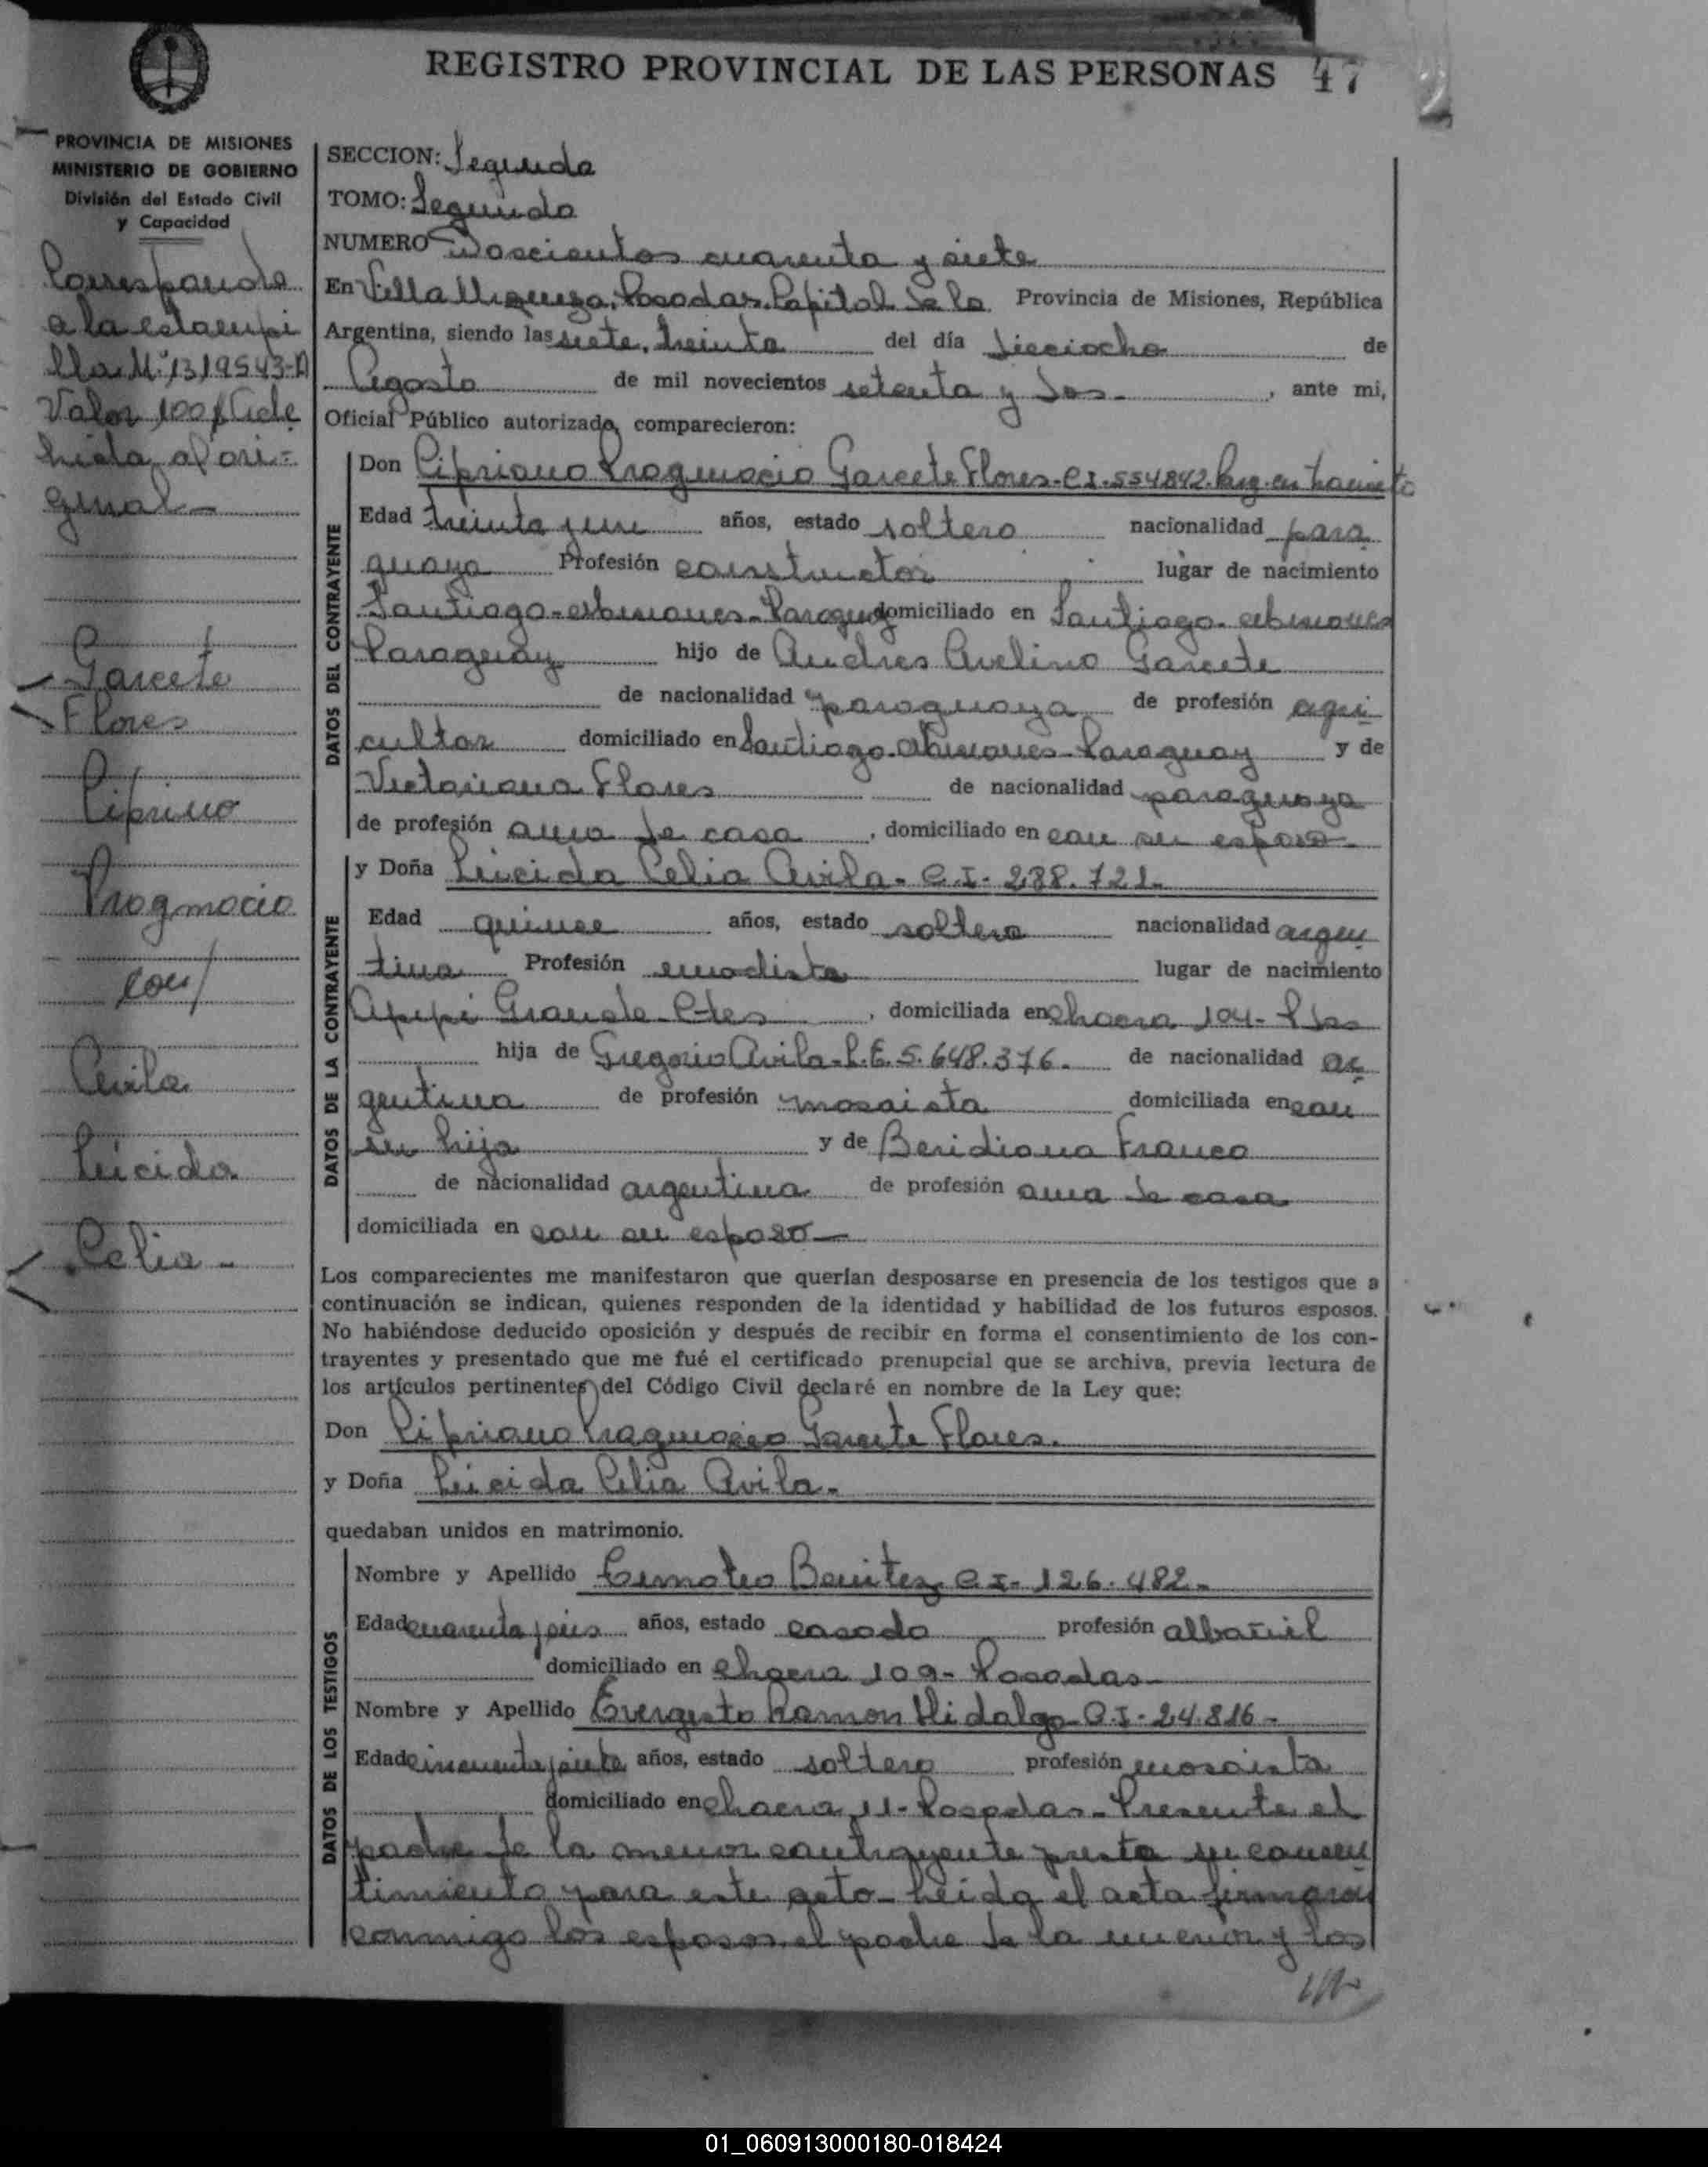 REGISTRO PROVINCIAL DE LAS PERSONAS 47
PROVINCIA DE MISIONES
MINISTERIO DE GOBIERNO
División del Estado Civil
y Capacidad
Corresponde
a la estampi
lla Nº 1319543-A
Valor 100 $ Adhe
rida al ori-
ginal-
Garcete
Flores
Cipriano
Progmocio
con/
Avila
Leicida
Celia-
SECCION: Segunda
TOMO: Segundo
NUMERO Doscientos cuarenta y siete
En Villa Urquiza, Posadas, Capital de la Provincia de Misiones, República
Argentina, siendo las siete, treinta del día dieciocho de
Agosto de mil novecientos setenta y dos-, ante mi,
Oficial Público autorizado, comparecieron:
DATOS DEL CONTRAYENTE
Don Cipriano Progmocio Garcete Flores-C.I.-554842. Parg. en
Edad treinta años, estado soltero nacionalidad para
guaya Profesión constructor lugar de nacimiento
Santiago-Misiones-Paraguay domiciliado en Santiago-Misiones
Paraguay hijo de Andres Avelino Garcete
de nacionalidad paraguaya de profesión agri
cultor domiciliado en Santiago-Misiones-Paraguay y de
Victoriana Flores de nacionalidad paraguaya
de profesión ama de casa, domiciliado en con su esposo-
DATOS DE LA CONTRAYENTE
y Doña Leicida Celia Avila-C.I-288.721-
Edad quince años, estado soltera nacionalidad argen
tina Profesión modista lugar de nacimiento
Apipé Grande-Ctes, domiciliada en chacra 104-Pdas
hija de Gregorio Avila-L.E.5.648.376. de nacionalidad ar
gentina de profesión mosaista domiciliada en con
su hija y de Beridiana Franco
de nacionalidad argentina de profesión ama de casa
domiciliada en con su esposo-
Los comparecientes me manifestaron que querían desposarse en presencia de los testigos que a
continuación se indican, quienes responden de la identidad y habilidad de los futuros esposos.
No habiéndose deducido oposición y después de recibir en forma el consentimiento de los con-
trayentes y presentado que me fué el certificado prenupcial que se archiva, previa lectura de
los artículos pertinentes del Código Civil declaré en nombre de la Ley que:
Don Cipriano Progmocio Garcete Flores.
y Doña Leicida Celia Avila-
quedaban unidos en matrimonio.
DATOS DE LOS TESTIGOS
Nombre y Apellido Timoteo Benitez C.I-126.482-
Edad cuarenta seis años, estado casado profesión albañil
domiciliado en chacra 109-Posadas-
Nombre y Apellido Evergisto Ramon Hidalgo-C.I-24.816-
Edad cincuenta siete años, estado soltero profesión mosaista
domiciliado en chacra 11-Posadas-Presente el
padre de la menor contrayente presta su consen
timiento para este acto-Leida el acta firmaron
conmigo los esposos, el padre de la menor y los
01_060913000180-018424